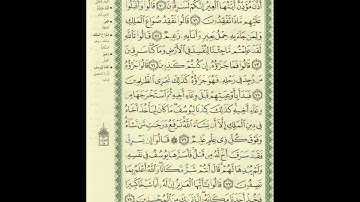 أَذَّنَ مُؤَذِّنٌ أَيَّتُهَا ٱلْعِيرُ إِنَّكُمْ لَسَٰرِقُونَ ۝ قَالُوا۟ وَأَقْبَلُوا۟
عَلَيْهِم مَّاذَا تَفْقِدُونَ ۝ قَالُوا۟ نَفْقِدُ صُوَاعَ ٱلْمَلِكِ
وَلِمَن جَآءَ بِهِۦ حِمْلُ بَعِيرٍ وَأَنَا۠ بِهِۦ زَعِيمٌ ۝ قَالُوا۟ تَٱللَّهِ
لَقَدْ عَلِمْتُم مَّا جِئْنَا لِنُفْسِدَ فِى ٱلْأَرْضِ وَمَا كُنَّا سَٰرِقِينَ
۝ قَالُوا۟ فَمَا جَزَٰٓؤُهُۥٓ إِن كُنتُمْ كَٰذِبِينَ ۝ قَالُوا۟ جَزَٰٓؤُهُۥ
مَن وُجِدَ فِى رَحْلِهِۦ فَهُوَ جَزَٰٓؤُهُۥ كَذَٰلِكَ نَجْزِى ٱلظَّٰلِمِينَ
۝ فَبَدَأَ بِأَوْعِيَتِهِمْ قَبْلَ وِعَآءِ أَخِيهِ ثُمَّ ٱسْتَخْرَجَهَا مِن
وِعَآءِ أَخِيهِ كَذَٰلِكَ كِدْنَا لِيُوسُفَ مَا كَانَ لِيَأْخُذَ أَخَاهُ
فِى دِينِ ٱلْمَلِكِ إِلَّآ أَن يَشَآءَ ٱللَّهُ نَرْفَعُ دَرَجَٰتٍ مَّن نَّشَآءُ
وَفَوْقَ كُلِّ ذِى عِلْمٍ عَلِيمٌ ۝ قَالُوٓا۟ إِن يَسْرِقْ
فَقَدْ سَرَقَ أَخٌ لَّهُۥ مِن قَبْلُ فَأَسَرَّهَا يُوسُفُ فِى نَفْسِهِۦ
وَلَمْ يُبْدِهَا لَهُمْ قَالَ أَنتُمْ شَرٌّ مَّكَانًا وَٱللَّهُ أَعْلَمُ بِمَا
تَصِفُونَ ۝ قَالُوا۟ يَٰٓأَيُّهَا ٱلْعَزِيزُ إِنَّ لَهُۥٓ أَبًا شَيْخًا كَبِيرًا
فَخُذْ أَحَدَنَا مَكَانَهُۥٓ إِنَّا نَرَىٰكَ مِنَ ٱلْمُحْسِنِينَ ۝